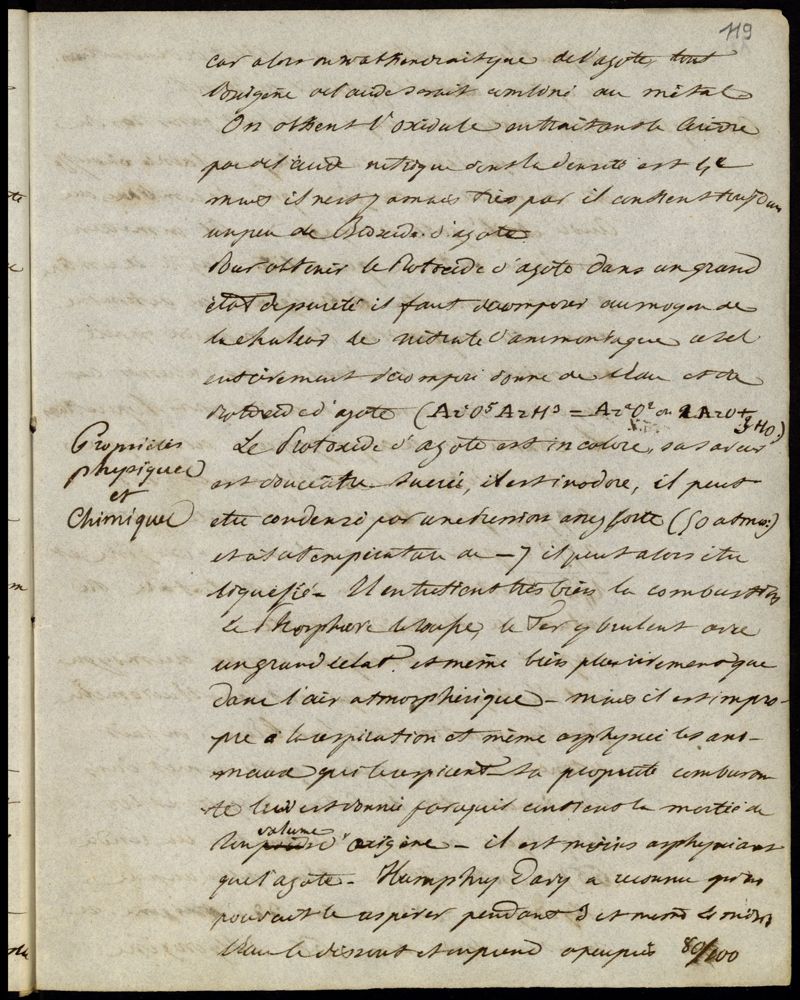 119
car alors on n'obtiendrait que de l'azote, tout
l'oxigène de l'acide serait combiné au métal
On obtient l'oxidule en traitant le cuivre
par de l'acide nitrique dont la densité est
mais il n'est jamais très pur il contient toujours
un peu de Bioxide d'azote
Pour obtenir le Protoxide d'azote dans un grand
état de pureté il faut décomposer au moyen de
la chaleur le nitrate d'ammoniaque ce sel
entièrement décomposé donne de l'eau et du
Protoxide d'azote (Az²O⁵AzH³ = Az²O² ou 2AzO + 3HO.)
Propriétés
physiques
et
Chimiques
Le Protoxide d'azote est incolore, sa saveur
est douceatre sucrée, il est inodore, il peut
etre condensé par une pression assez forte (50 atmos:)
et à la température de – 7 il peut alors etre
liquéfié – Il entretient très bien la combustion
Le Phosphore le soufre, le Fer y brulent avec
un grand éclat. et même bien plus vivement que
dans l'air atmosphérique – mais il est impro-
pre à la respiration et même asphyxie les ani-
maux qui le respirent – sa propriété comburan
te lui est donnée parcequ'il contient la moitié de
son volume d'oxigène – il est moins asphyxiant
que l'azote – Humphry Davy a reconnu qu'on
pouvait le respirer pendant 3 et même 4 minutes
l'eau le dissout et en prend à peu près 80/100